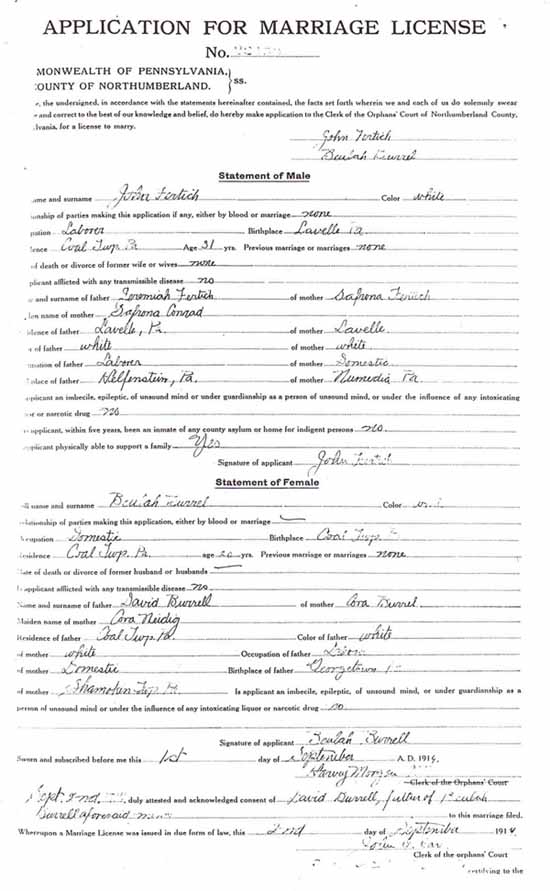 APPLICATION FOR MARRIAGE LICENSE
No.
MONWEALTH OF PENNSYLVANIA,
COUNTY OF NORTHUMBERLAND. } ss.
e, the undersigned, in accordance with the statements hereinafter contained, the facts set forth wherein we and each of us do solemnly swear
e and correct to the best of our knowledge and belief, do hereby make application to the Clerk of the Orphans' Court of Northumberland County,
lvania, for a license to marry.
John Fertich
Beulah Burrel
Statement of Male
ame and surname John Fertich Color white
ionship of parties making this application if any, either by blood or marriage none
pation Laborer Birthplace Lavelle Pa
dence Coal Twp. Pa Age 31 yrs. Previous marriage or marriages none
of death or divorce of former wife or wives none
plicant afflicted with any transmissible disease no
e and surname of father Jeremiah Fertich of mother Safrona Fertich
den name of mother Safrona Conrad
idence of father Lavelle, Pa. of mother Lavelle
r of father white of mother white
pation of father Laborer of mother Domestic
place of father Helfenstein, Pa. of mother Numedia Pa
applicant an imbecile, epileptic, of unsound mind or under guardianship as a person of unsound mind, or under the influence of any intoxicating
or or narcotic drug no
e applicant, within five years, been an inmate of any county asylum or home for indigent persons no.
applicant physically able to support a family Yes
Signature of applicant John Fertich
Statement of Female
ll name and surname Beulah Burrel Color
elationship of parties making this application, either by blood or marriage —
Occupation Domestic Birthplace Coal Twp.
Residence Coal Twp. Pa. age 20 yrs. Previous marriage or marriages none
Date of death or divorce of former husband or husbands —
Is applicant afflicted with any transmissible disease no.
Name and surname of father David Burrell of mother Cora Burrel
Maiden name of mother Cora Neidig
Residence of father Coal Twp. Pa. Color of father white
of mother white Occupation of father
of mother Domestic Birthplace of father Georgetown
of mother Shamokin Twp Pa Is applicant an imbecile, epileptic, of unsound mind, or under guardianship as a
person of unsound mind or under the influence of any intoxicating liquor or narcotic drug no
Signature of applicant Beulah Burrell
Sworn and subscribed before me this 1st day of September A. D. 1914.
Harvey
Clerk of the Orphans' Court
Sept. 2nd, duly attested and acknowledged consent of David Burrell, father of Beulah
Burrell aforesaid minor to this marriage filed.
Whereupon a Marriage License was issued in due form of law, this 2nd day of September 1914
John
Clerk of the orphans' Court
certifying to the